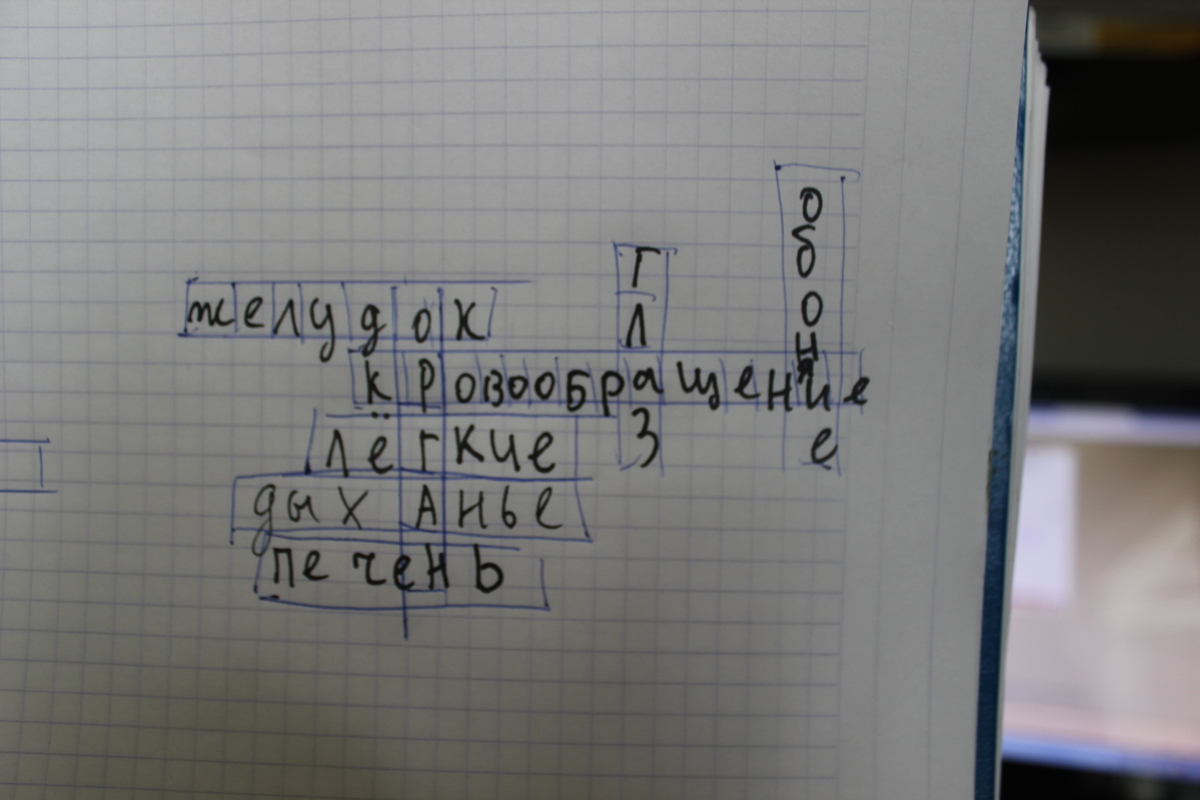 желудок
кровообращение
лёгкие
дыханье
печень
глаз
обоние